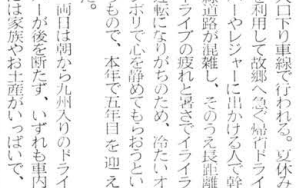 入口下り車線で行われる。夏休み
を利用して故郷へ急ぐ帰省ドライ
ーやレジャーに出かける人で幹
線道路が混雑し、そのうえ長距離
ライブの疲れと暑さでイライラ
運転になりがちのため、冷たいオ
ボリで心を静めてもらおうとい
もので、本年で五年目を迎え
。
両日は朝から九州入りのドライ
ーが後を断たず、いずれも車内
は家族やお土産がいっぱいで、